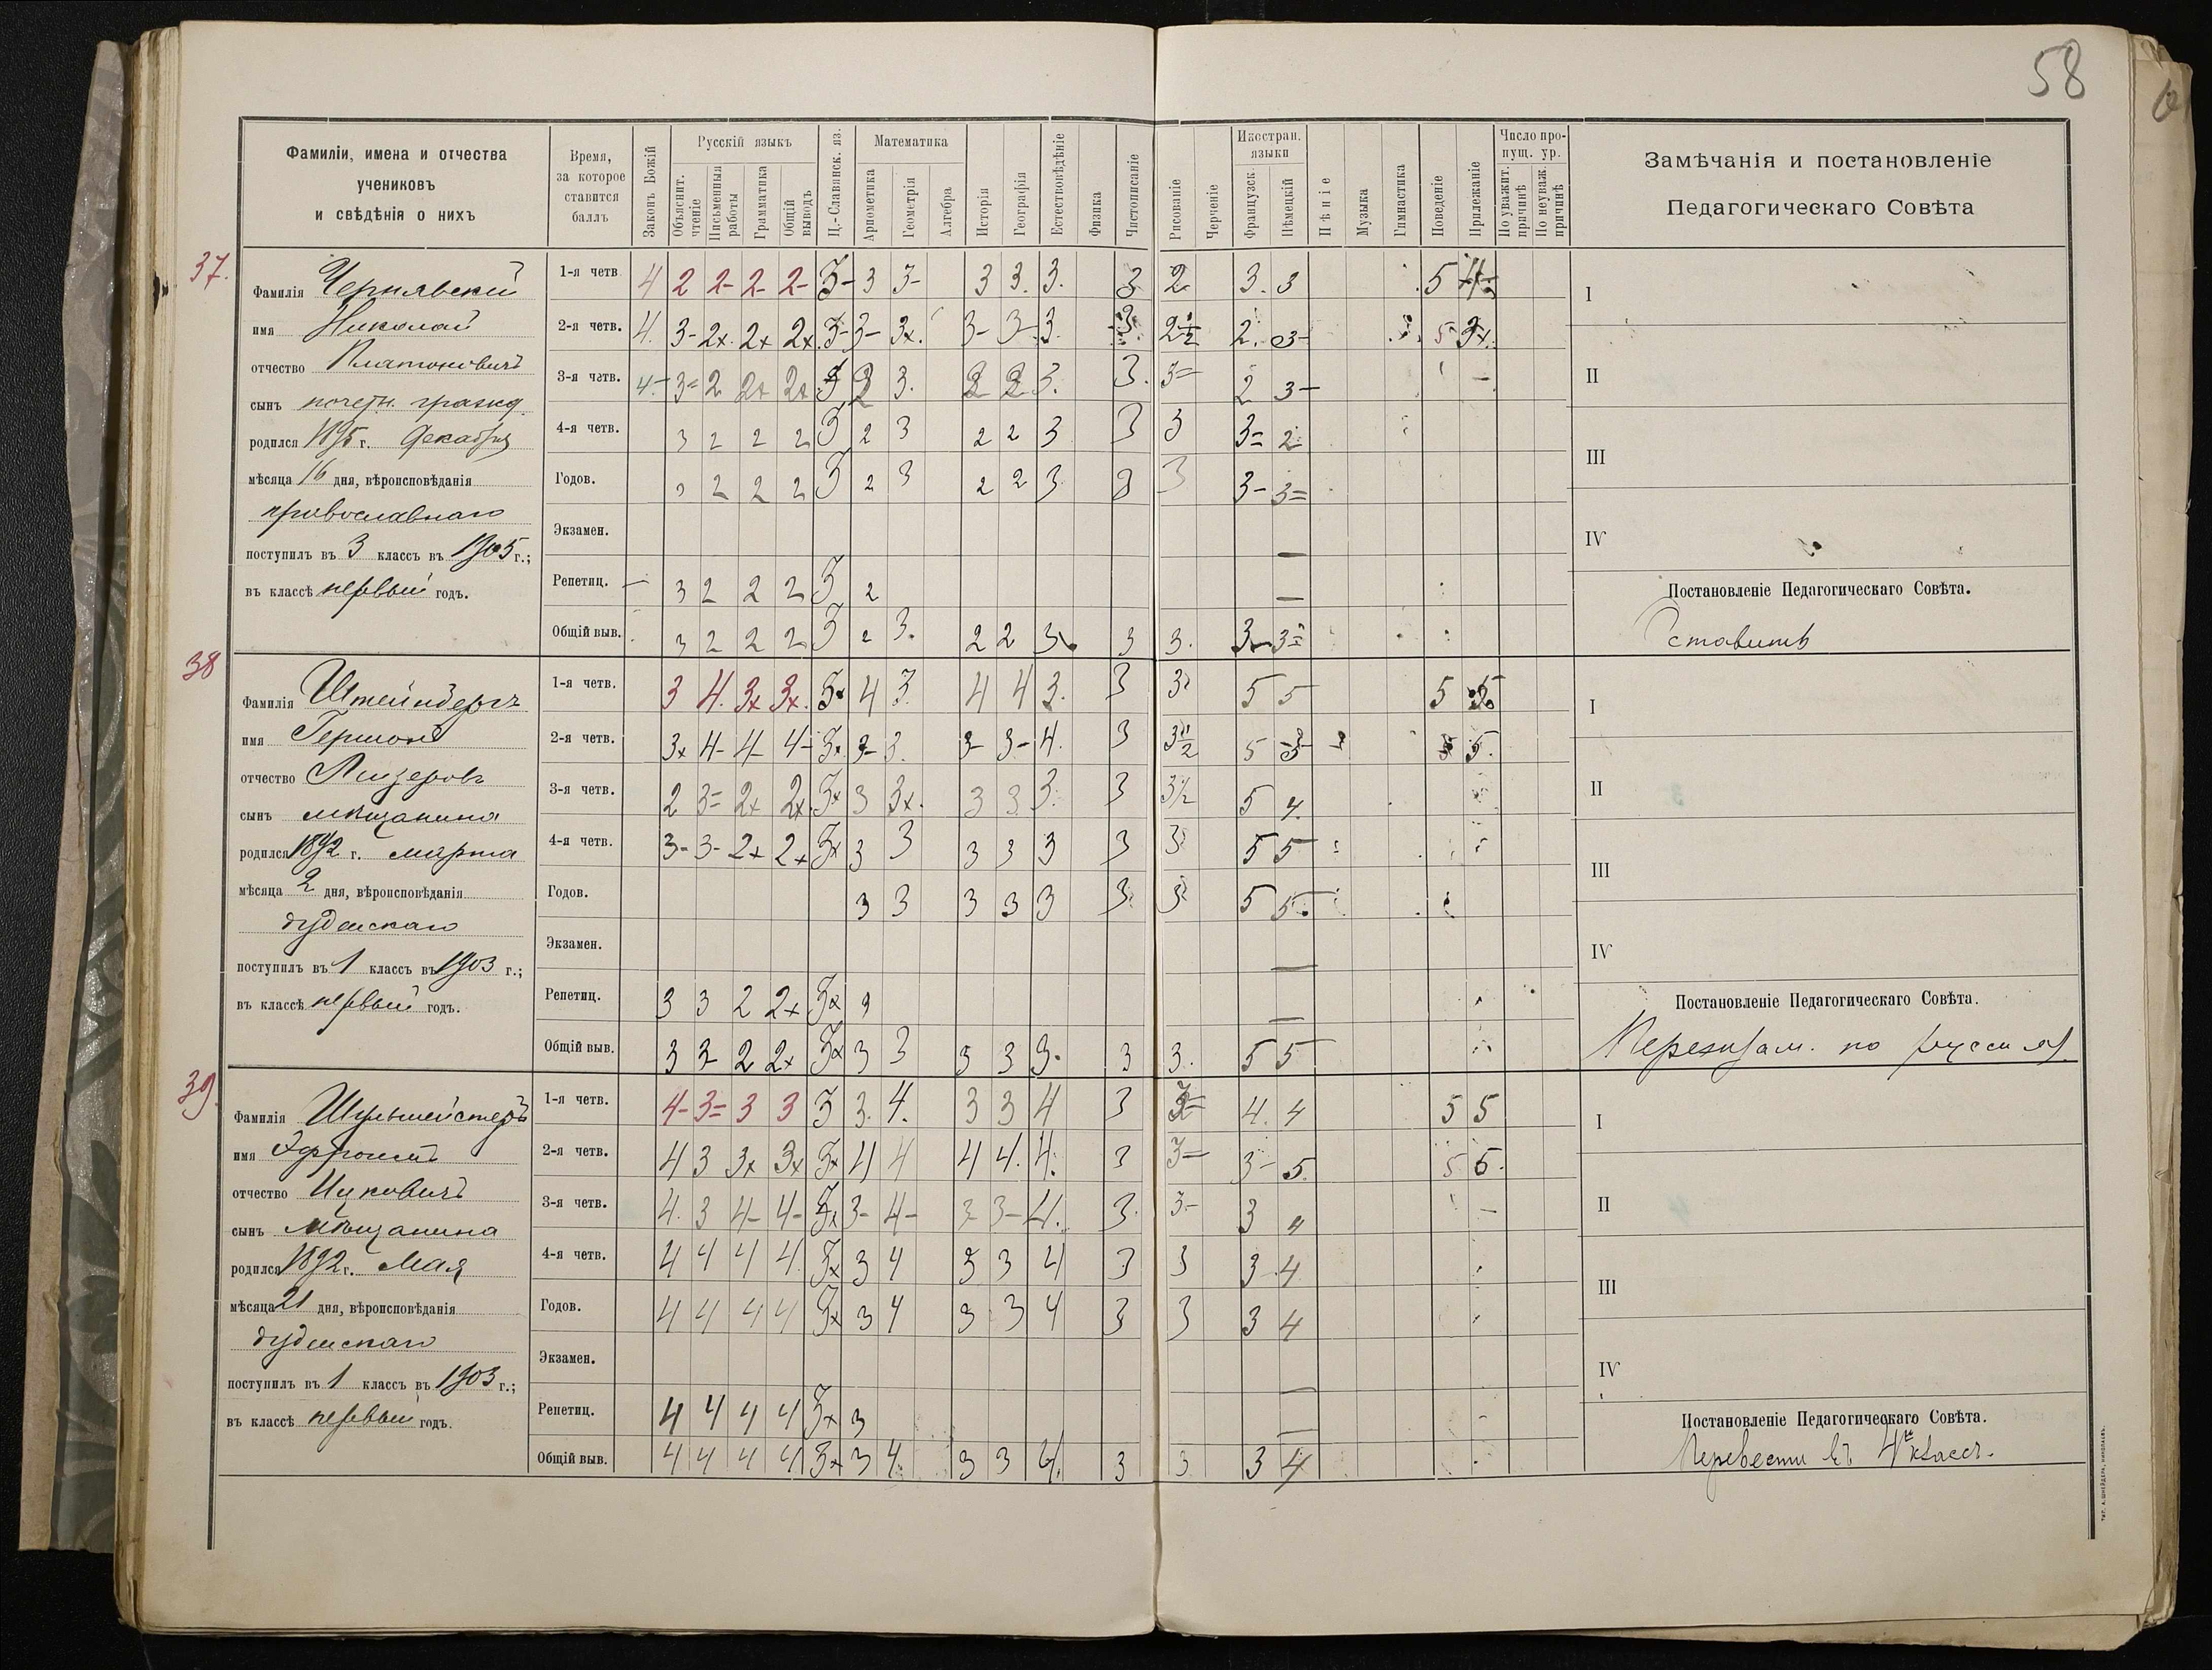 58
Фамиліи, имена и отчества
учениковъ
и свѣдѣнія о нихъ
Время,
за которое
ставится
баллъ
Законъ Божій
Русскій языкъ
Объяснит.
чтеніе
Письменныя
работы
Грамматика
Общій
выводъ
Ц.-Славянск. яз.
Математика
Ариѳметика
Геометрія
Алгебра
Исторія
Географія
Естествовѣдѣніе
Физика
Чистописаніе
Рисованіе
Черченіе
Иностран.
языки
Французск.
Нѣмецкій
Пѣніе
Музыка
Гимнастика
Поведеніе
Прилежаніе
Число про-
пущ. ур.
По уважит.
причинѣ
По неуваж.
причинѣ
Замѣчанія и постановленіе
Педагогическаго Совѣта
37.
Фамилія Чернявскій
имя Николай
отчество Платоновичъ
сынъ почетн. гражд.
родился 1895 г. Декабря
мѣсяца 16 дня, вѣроисповѣданія
православнаго
поступилъ въ 3 классъ въ 1905 г.;
въ классѣ первый годъ.
1-я четв. 4 2 2- 2- 2- 3- 3 3- 3 3. 3. 3 2 3. 3 5 4-
2-я четв. 4. 3- 2x. 2x 2x 3- 3- 3x. 3- 3- 3. 3. 2 1/2 2. 3- 5 3x.
3-я четв. 4- 3= 2 2x 2x 3 2 3. 2 2 3. 3. 3= 2 3-
4-я четв. 3 2 2 2 3 2 3 2 2 3 3 3 3= 2
Годов. 3 2 2 2 3 2 3 2 2 3 3 3 3- 3=
Экзамен. —
Репетиц. — 3 2 2 2 3 2 —
Общій выв. 3 2 2 2 3 2 3. 2 2 3. 3 3. 3- 3=
I
II
III
IV
Постановленіе Педагогическаго Совѣта.
Оставить
38
Фамилія Штейнбергъ
имя Гершонъ
отчество Лизеровъ
сынъ мѣщанина
родился 1892 г. марта
мѣсяца 2 дня, вѣроисповѣданія
іудейскаго
поступилъ въ 1 классъ въ 1903 г.;
въ классѣ первый годъ.
1-я четв. 3 4. 3x 3x. 3x 4 3. 4 4 3. 3 3 5 5 5 5
2-я четв. 3x 4- 4- 4- 3x. 3- 3. 3- 3- 4. 3 3 1/2 5 3- 5 5.
3-я четв. 2 3= 2x 2x. 3x 3 3x. 3 3 3. 3 3 1/2 5 4.
4-я четв. 3- 3- 2x 2x 3x 3 3 3 3 3 3 3 5 5
Годов. 3 3 3 3 3 3. 3 5 5.
Экзамен. —
Репетиц. 3 3 2 2x 3x 3 —
Общій выв. 3 3 2 2x 3x 3 3 3 3 3. 3 3. 5 5
I
II
III
IV
Постановленіе Педагогическаго Совѣта.
Переэкзам. по русск яз.
39
Фамилія Шульмейстеръ
имя Эфроимъ
отчество Ицковичъ
сынъ мѣщанина
родился 1892 г. Мая
мѣсяца 21 дня, вѣроисповѣданія
іудейскаго
поступилъ въ 1 классъ въ 1903 г.;
въ классѣ первый годъ.
1-я четв. 4- 3= 3 3 3 3. 4. 3 3 4 3 3= 4. 4 5 5
2-я четв. 4 3 3x 3x 3x 4 4 4 4. 4. 3 3= 3- 5. 5 5.
3-я четв. 4. 3 4- 4- 3x 3- 4- 3 3- 4. 3. 3- 3 4
4-я четв. 4 4 4 4. 3x 3 4 3 3 4 3 3 3 4
Годов. 4 4 4 4 3x 3 4 3 3 4 3 3 3 4
Экзамен. —
Репетиц. 4 4 4 4 3x 3 —
Общій выв. 4 4 4 4 3x 3 4. 3 3 4. 3 3 3 4
I
II
III
IV
Постановленіе Педагогическаго Совѣта.
Перевести въ 4й классъ.
ТИП. А. ШНЕЙДЕРА, НИКОЛАЕВЪ.